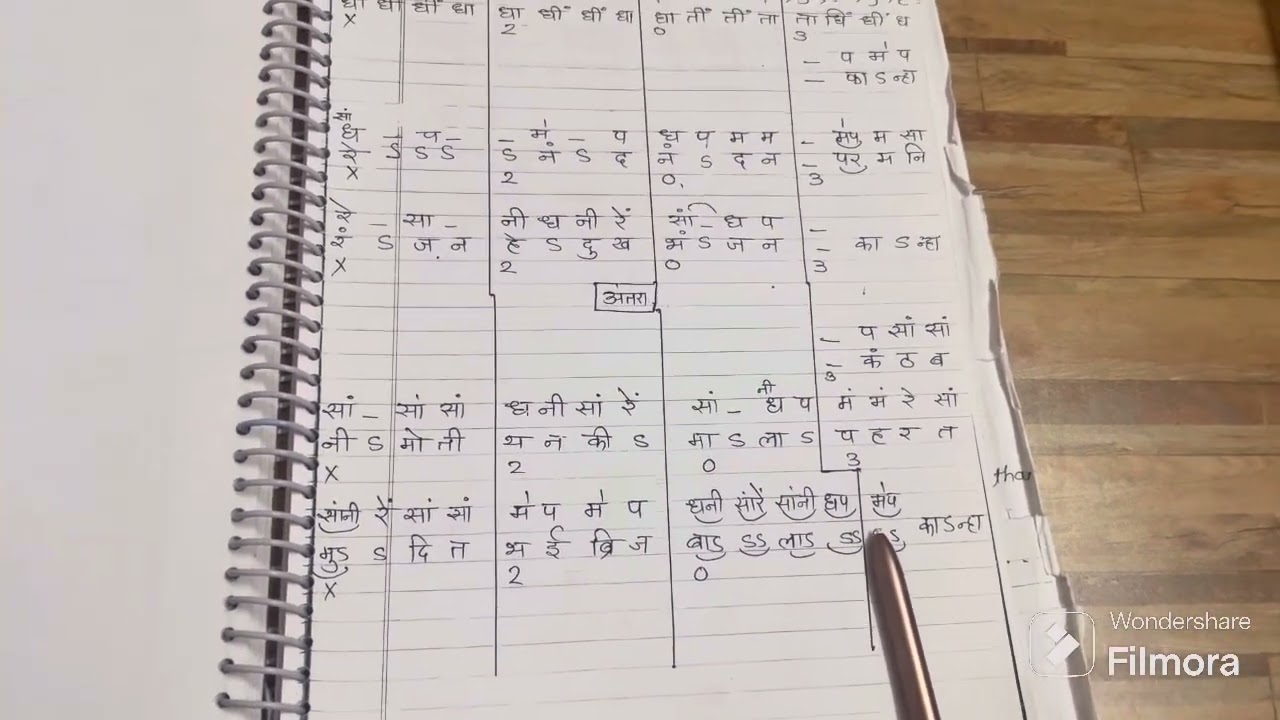 धा धीं धीं धा धा धीं धीं धा धा तीं तीं ता ता धिं धीं ध
X 2 0 3
– प म॑ प
– का ऽ न्हा
सां
ध – प – – म॑ – प ध प म म – म॑प म सा
ऽ ऽ ऽ ऽ नं ऽ द नं ऽ द न – पर म नि
X 2 0. 3
– सा – नी ध नी रें सां – ध प –
ऽ ज न हे ऽ दु ख भं ऽ ज न – का ऽ न्हा
X 2 0 3
अंतरा
– प सां सां
– कं ठ ब
3
नी
सां – सां सां ध नी सां रें सां – ध प मं मं रे सां
नी ऽ मो ती य न की ऽ मा ऽ ला ऽ प ह र त
X 2 0 3
सांनी रें सां सां म॑ प म॑ प धनी सांरें सांनी धप म॑प
मुऽ ऽ दि त भ ई ब्रि ज बाऽ ऽऽ लाऽ ऽऽ ऽऽ काऽन्हा
X 2 0
Wondershare
Filmora